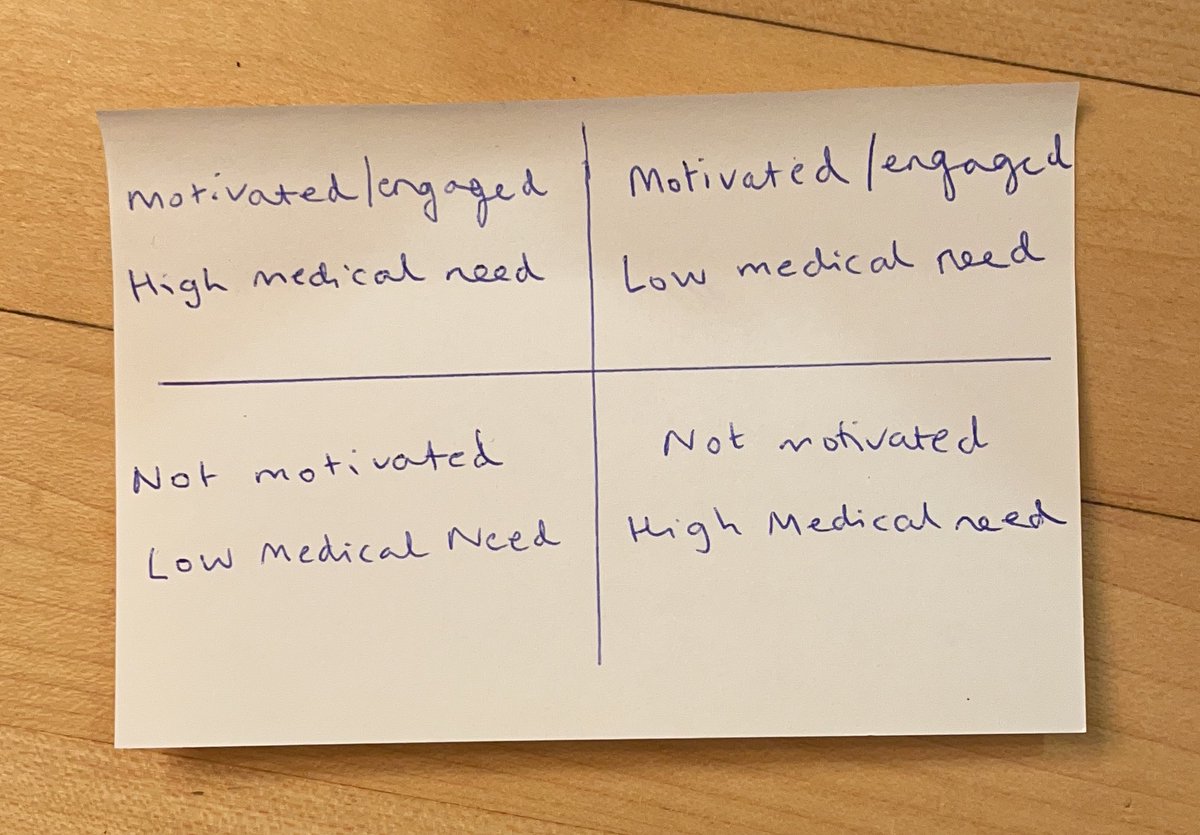 Motivated/engaged
High medical need
Motivated/engaged
Low medical need
Not motivated
Low Medical Need
Not motivated
High Medical need